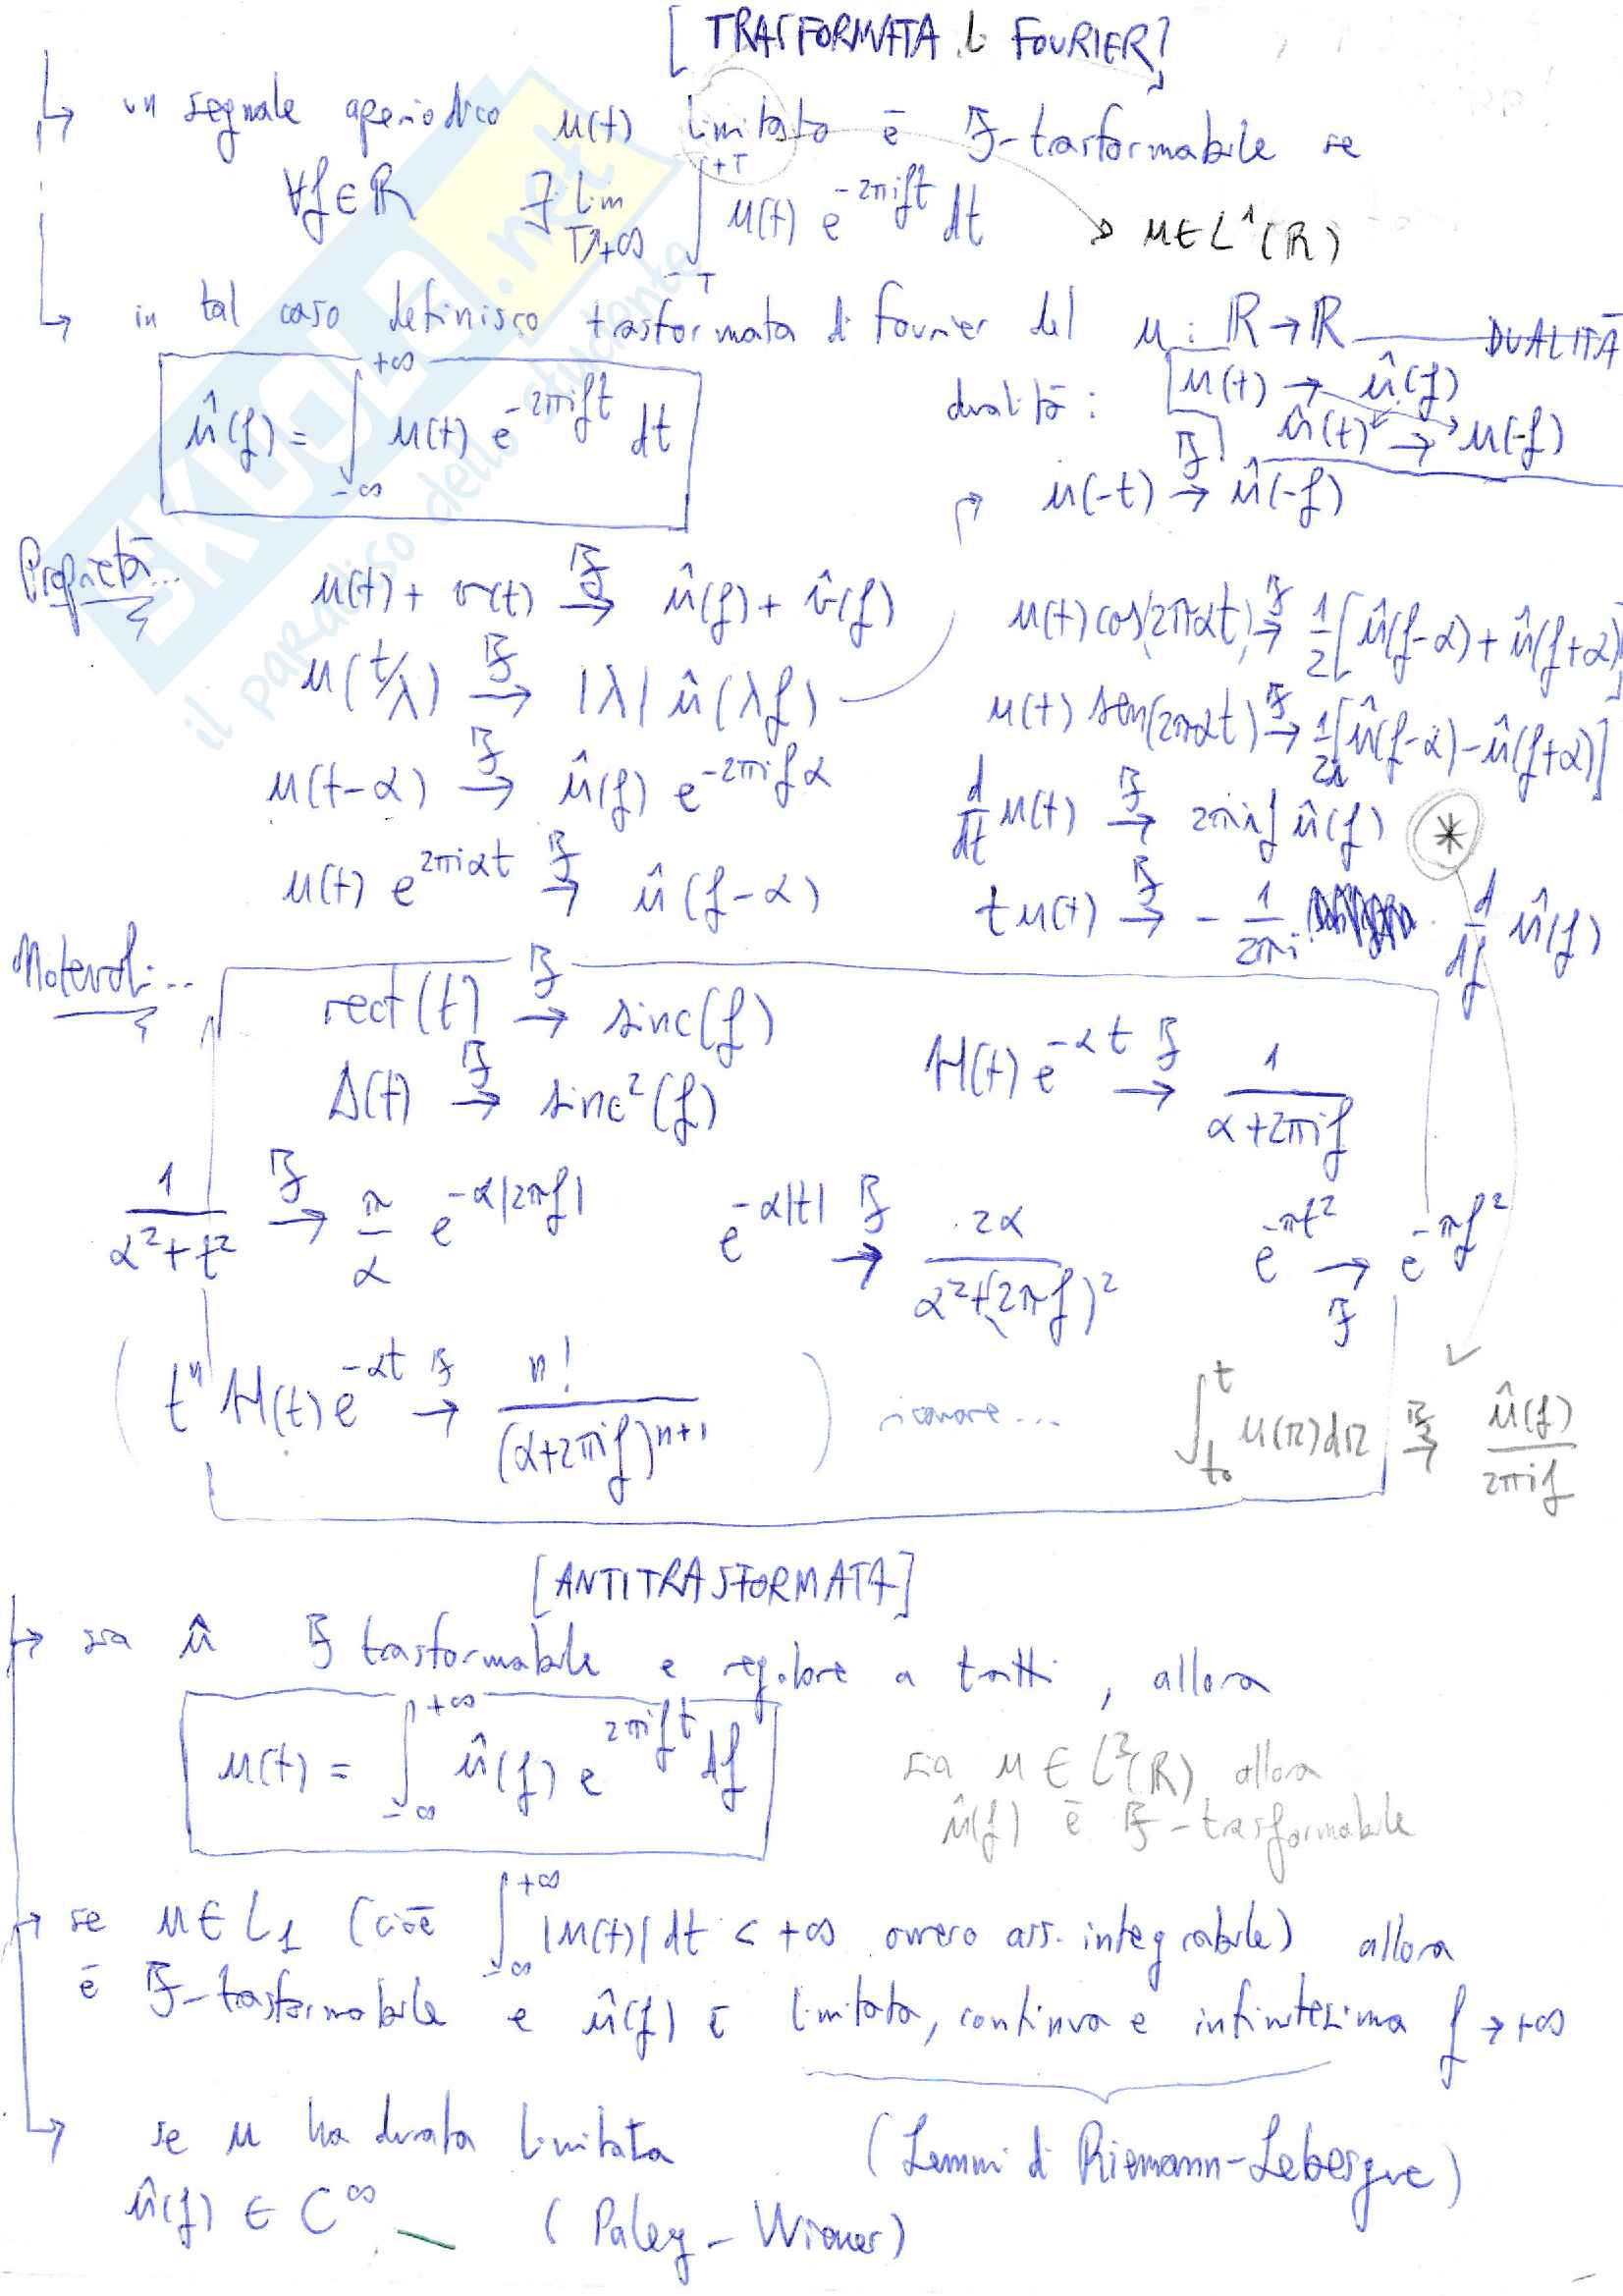 [TRASFORMATA di FOURIER]
un segnale aperiodico u(t) limitato è F-trasformabile se
∀f∈ℝ ∃ lim T→+∞ ∫_{-T}^{+T} u(t) e^{-2πift} dt → u∈L¹(ℝ)
in tal caso definisco trasformata di Fourier del u: ℝ→ℝ DUALITÀ
û(f) = ∫_{-∞}^{+∞} u(t) e^{-2πift} dt
dualità: u(t) → û(f)
û(t) → u(-f)
u(-t) →^F û(-f)
Proprietà...
u(t) + v(t) →^F û(f) + v̂(f)
u(t/λ) →^F |λ| û(λf)
u(t-α) →^F û(f) e^{-2πifα}
u(t) e^{2πiαt} →^F û(f-α)
u(t) cos(2παt) →^F 1/2 [û(f-α) + û(f+α)]
u(t) sen(2παt) →^F 1/2i [û(f-α) - û(f+α)]
d/dt u(t) →^F 2πif û(f) *
t u(t) →^F - 1/2πi d/df û(f)
Notevoli...
rect(t) →^F sinc(f)
Δ(t) →^F sinc²(f)
H(t) e^{-αt} →^F 1/(α+2πif)
1/(α²+t²) →^F π/α e^{-α|2πf|}
e^{-α|t|} →^F 2α/(α²+(2πf)²)
e^{-πt²} →^F e^{-πf²}
(tⁿ H(t) e^{-αt} →^F n!/(α+2πif)^{n+1})
∫_{t₀}^{t} u(τ)dτ →^F û(f)/2πif
[ANTITRASFORMATA]
sia û F trasformabile e regolare a tratti, allora
u(t) = ∫_{-∞}^{+∞} û(f) e^{2πift} df
sia u ∈ L²(ℝ) allora
û(f) è F-trasformabile
se u∈L₁ (cioè ∫_{-∞}^{+∞} |u(t)| dt < +∞ ovvero ass. integrabile) allora
è F-trasformabile e û(f) è limitata, continua e infinitesima f→+∞
(Lemma di Riemann-Lebesgue)
se u ha durata limitata
û(f) ∈ C^∞ (Paley-Wiener)
SKUOLA.net
il paradiso dello studente